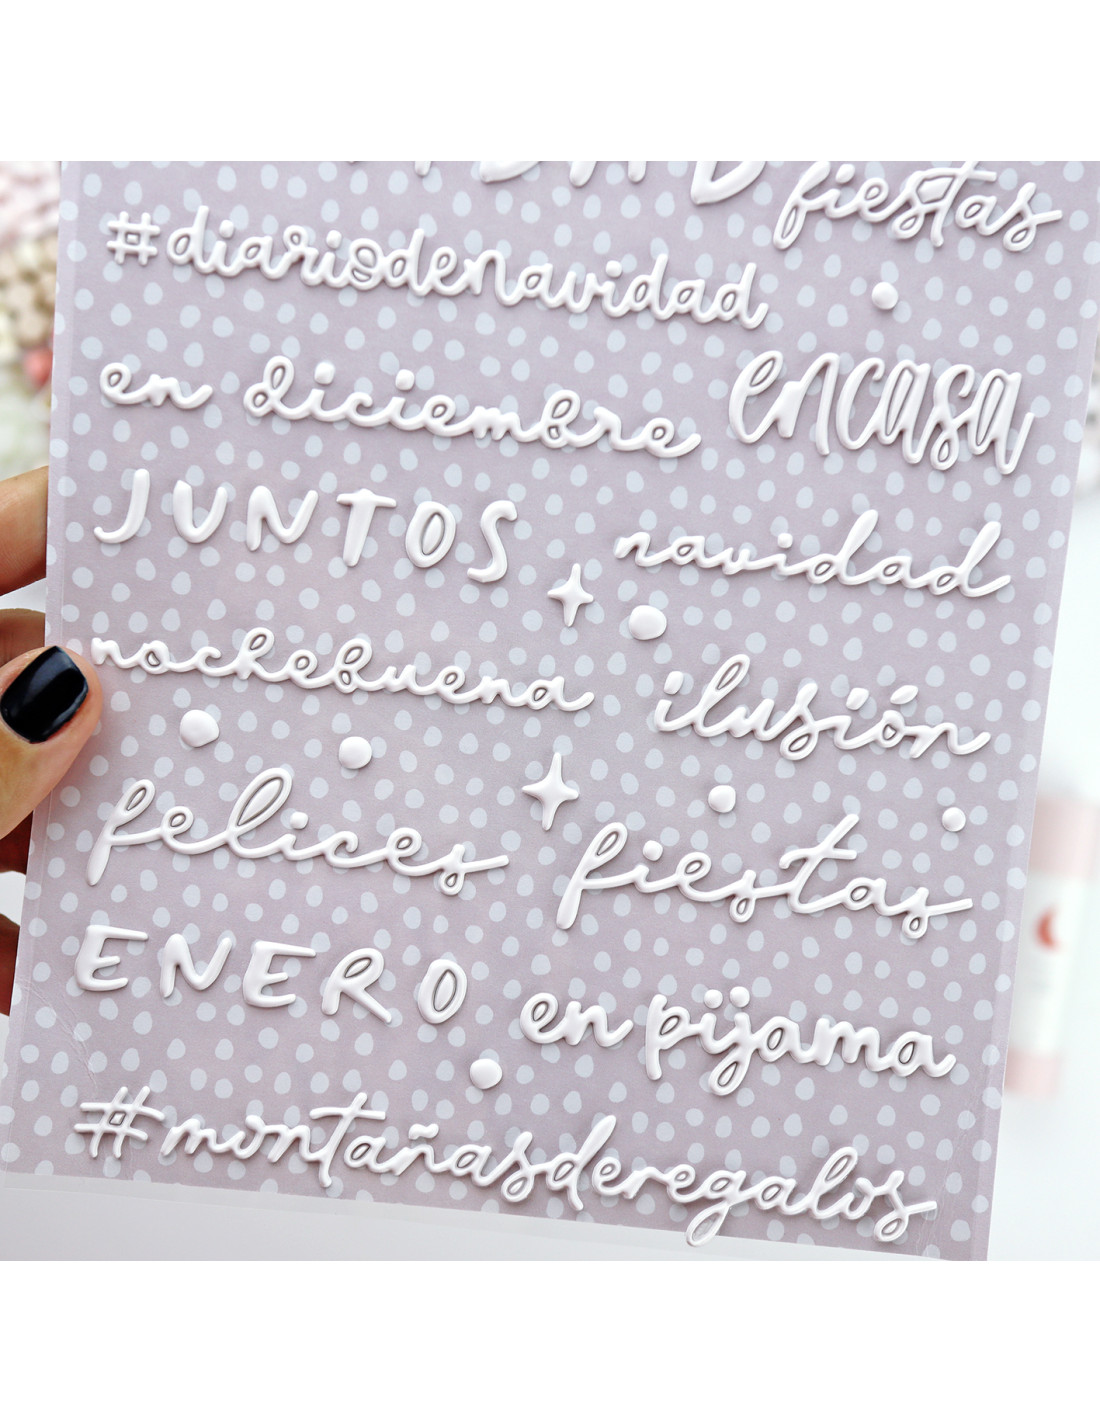 fiestas
#diariodenavidad
en diciembre
en casa
JUNTOS
navidad
nochebuena
ilusión
felices fiestas
ENERO
en pijama
#montañasderegalos